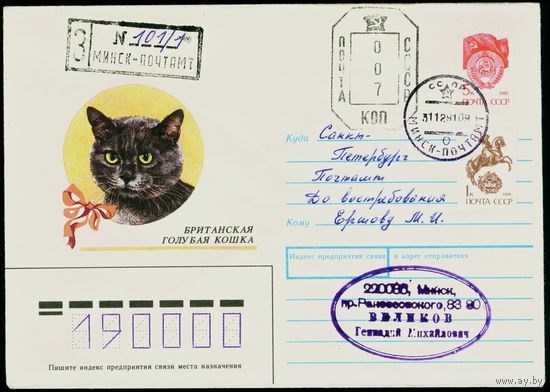 З
N 101/1
МИНСК-ПОЧТАМТ
ПОЧТА
СССР
007
КОП
5К 1988
ПОЧТА СССР
СССР
31128109
МИНСК-ПОЧТАМТ
1К 1988
ПОЧТА СССР
БРИТАНСКАЯ
ГОЛУБАЯ КОШКА
Куда Санкт-
Петербург
Почтамт
До востребования
Кому Ершову М. И.
Индекс предприятия связи и адрес отправителя
Минск,
ВЕЛИКОВ
Геннадий Михайлович
190000
Пишите индекс предприятия связи места назначения
www.ay.by